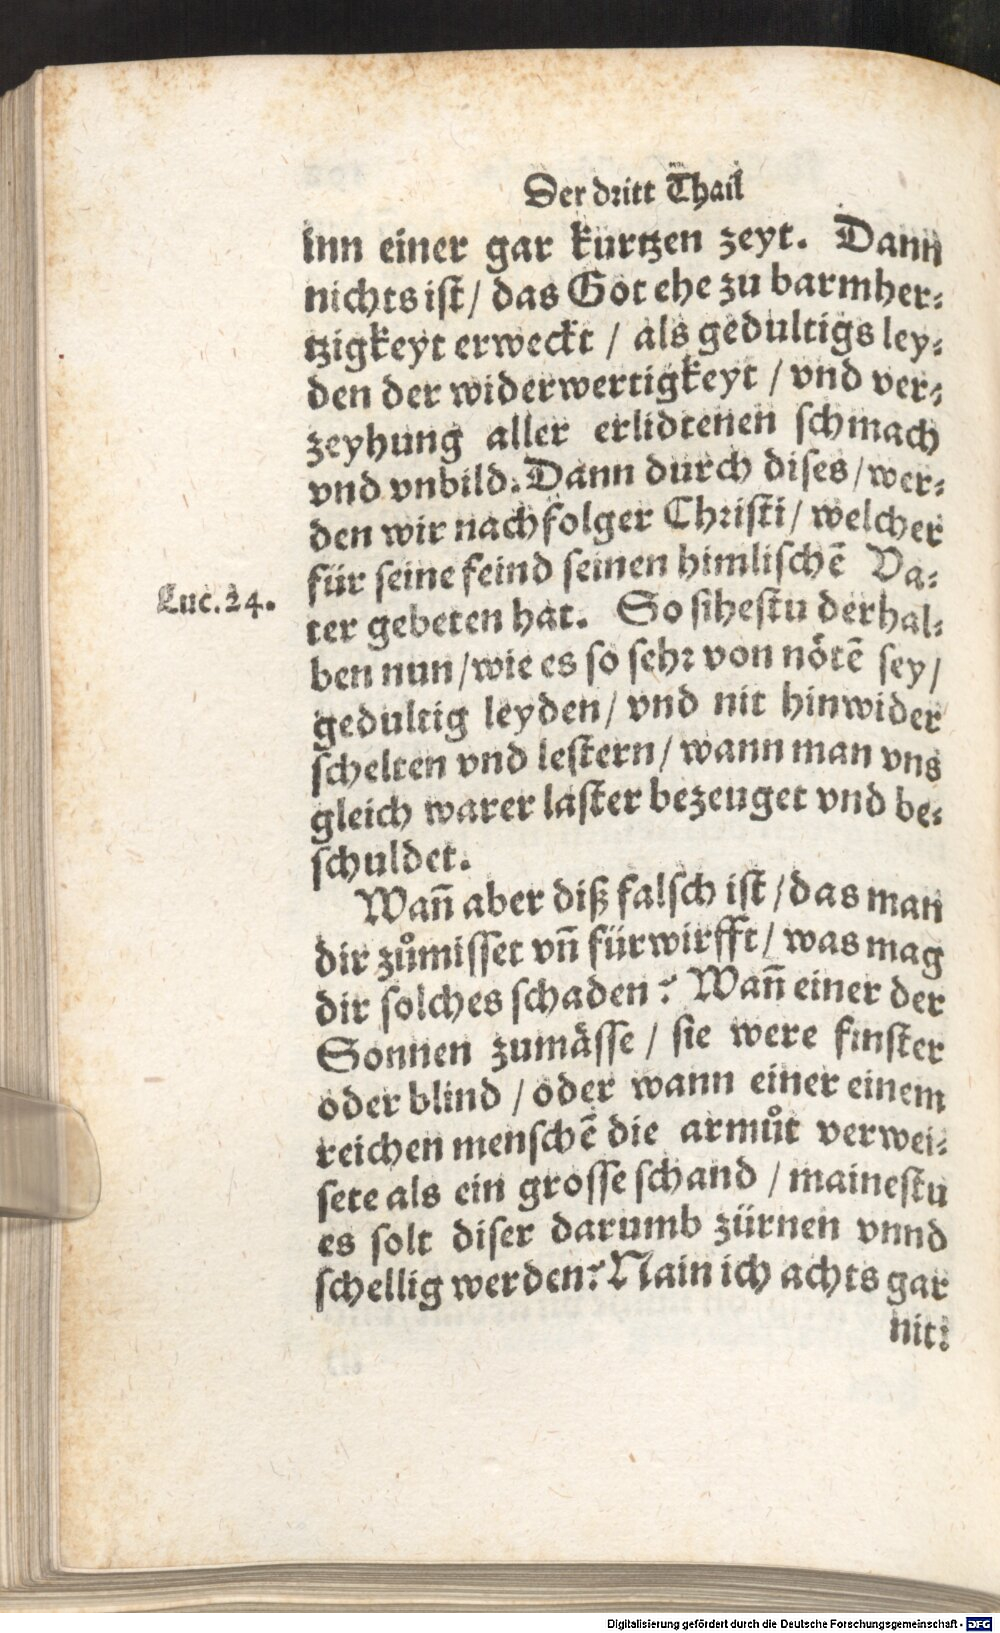 Der dritt Thail
inn einer gar kurtzen zeyt. Dann
nichts ist/ das Got ehe zu barmher⸗
tzigkeyt erweckt / als gedultigs ley⸗
den der widerwertigkeyt / vnd ver⸗
zeyhung aller erlidtenen schmach
vnd vnbild. Dann durch dises/ wer⸗
den wir nachfolger Christi/ welcher
für seine feind seinen himlischē Va⸗
Luc. 24.
ter gebeten hat. So sihestu derhal⸗
ben nun/ wie es so sehr von nötē sey/
gedultig leyden/ vnd nit hinwider
schelten vnd lestern/ wann man vns
gleich warer laster bezeuget vnd be⸗
schuldet.
Wañ aber diß falsch ist/ das man
dir zůmisset vñ fürwirfft/ was mag
dir solches schaden? Wañ einer der
Sonnen zumässe / sie were finster
oder blind / oder wann einer einem
reichen menschē die armůt verwei⸗
sete als ein grosse schand / mainestu
es solt diser darumb zürnen vnnd
schellig werden? Nain ich achts gar
nit:
Digitalisierung gefördert durch die Deutsche Forschungsgemeinschaft - DFG